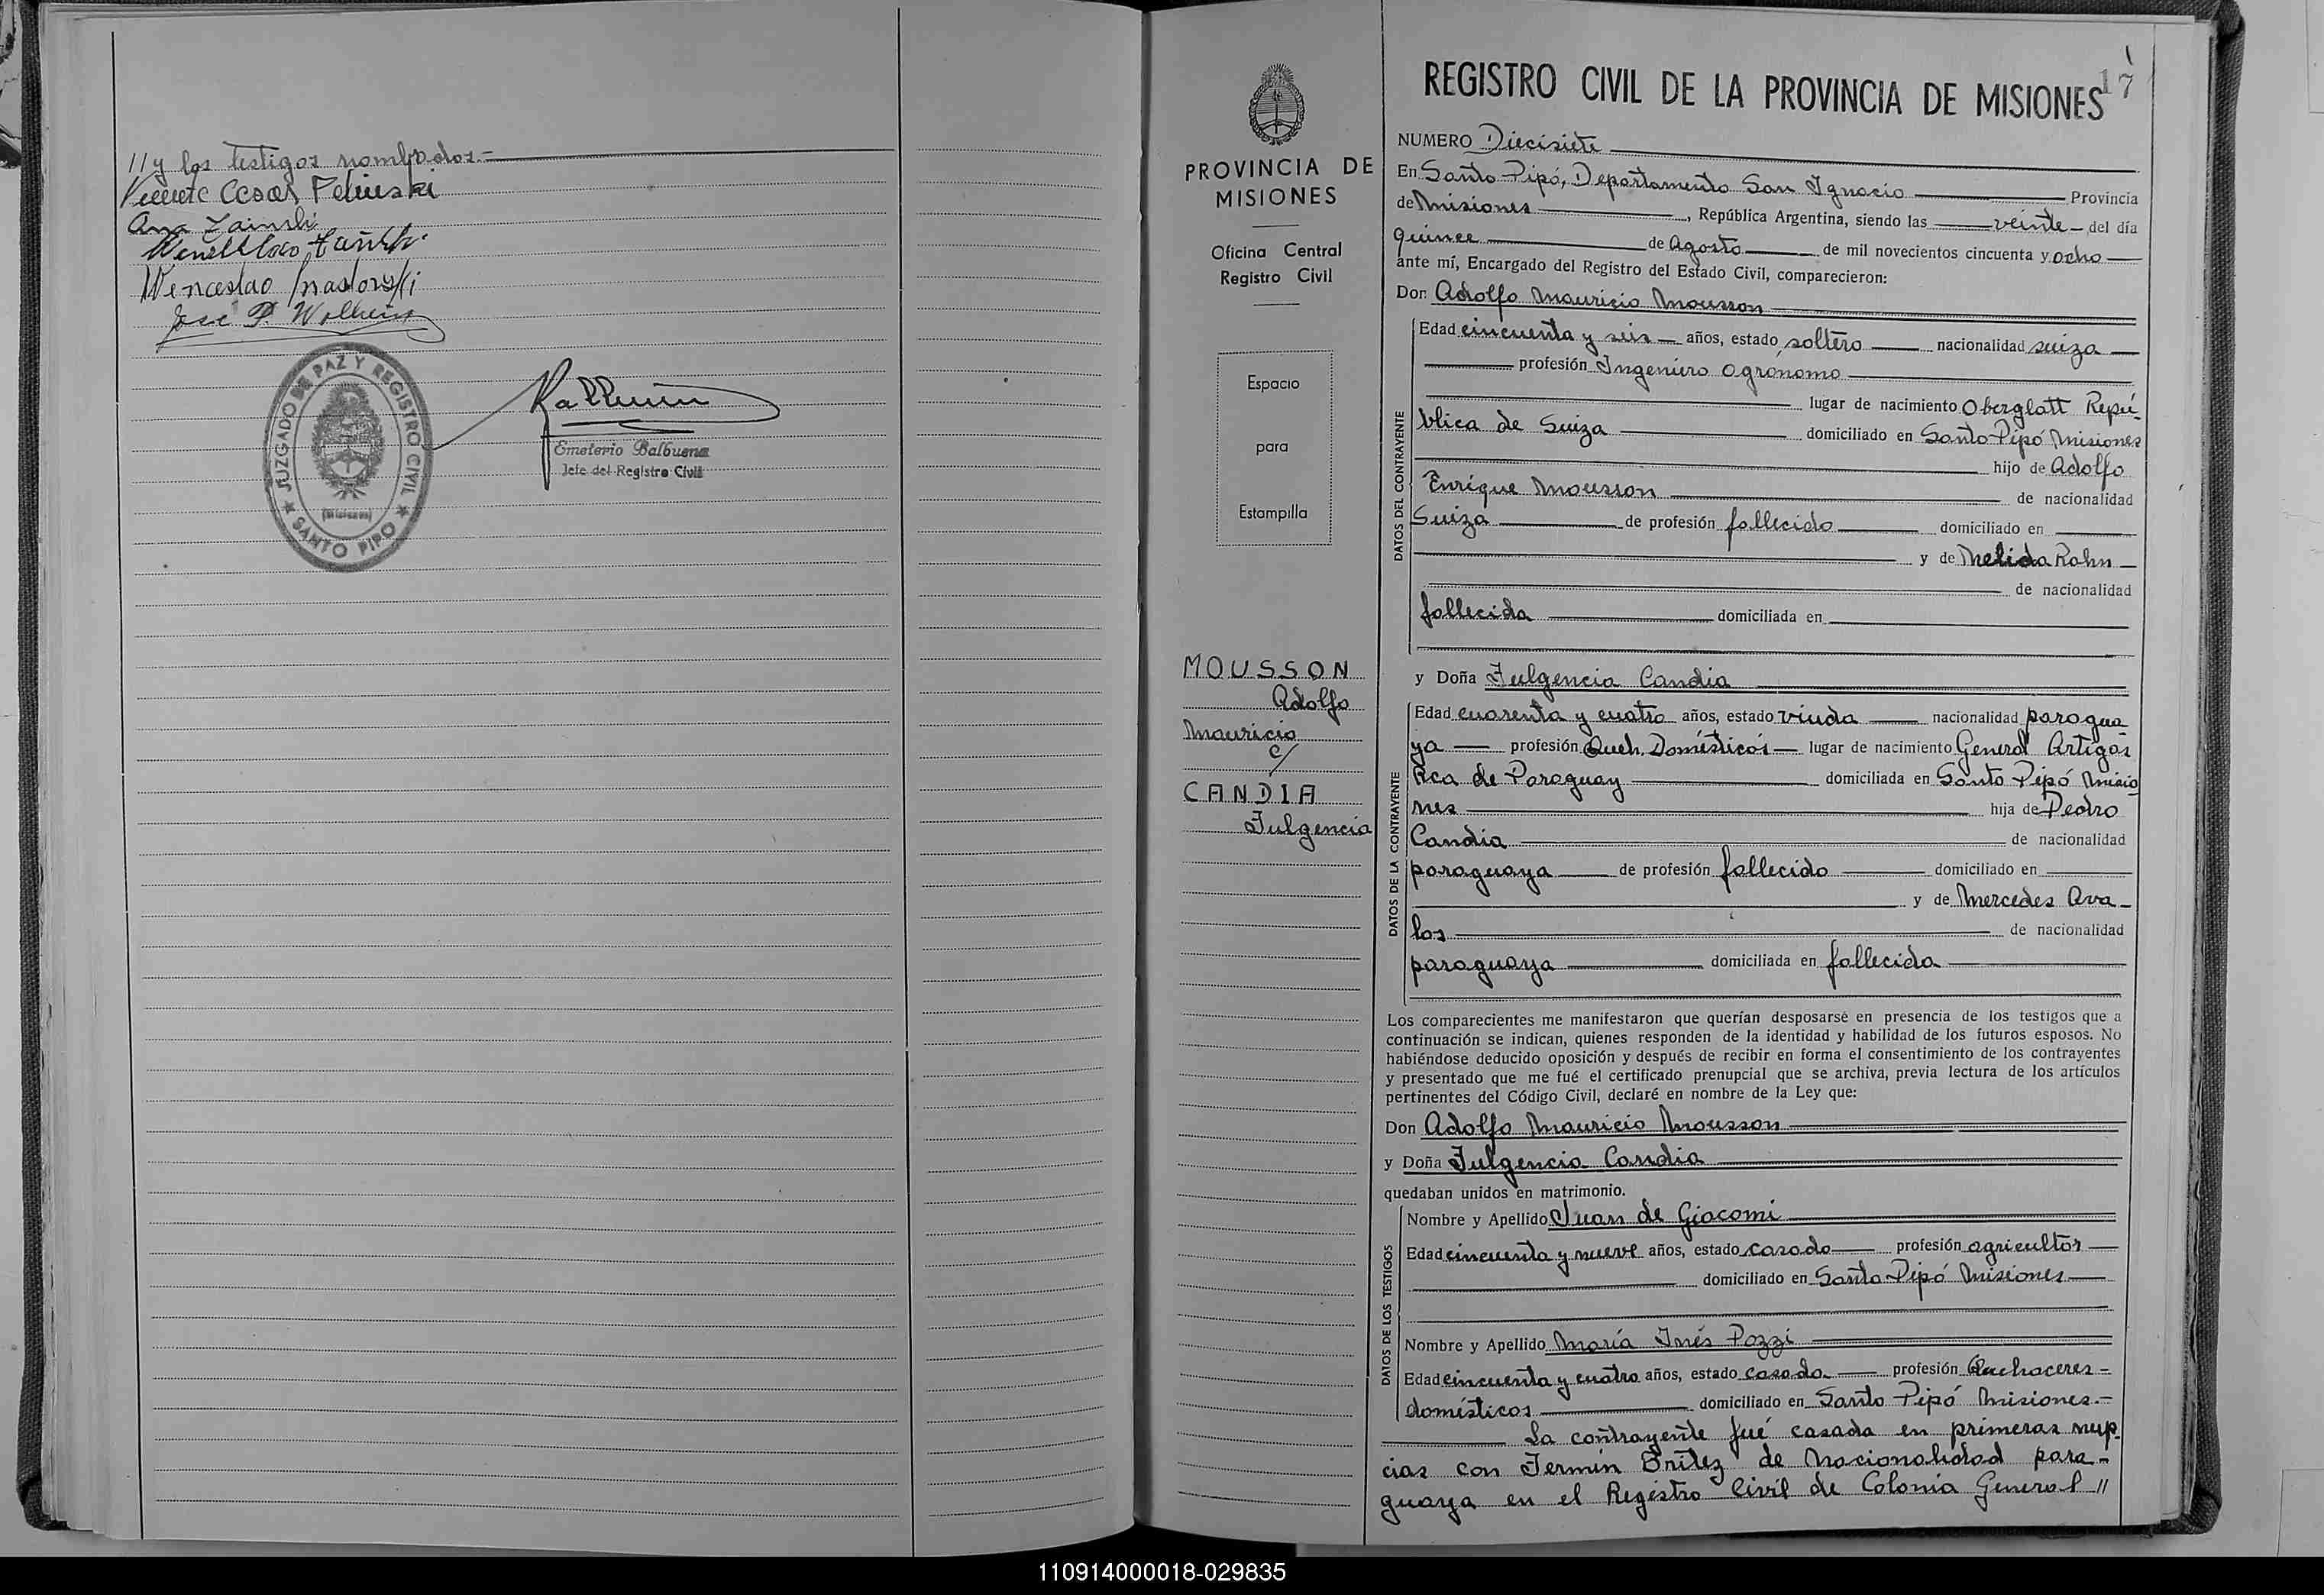 // y los testigos nombrados.-
Ana Zainski
Wenceslao
José P. Wolhein
JUZGADO DE PAZ Y REGISTRO CIVIL
(Misiones)
★ SANTO PIPO ★
Emeterio Balbuena
Jefe del Registro Civil
PROVINCIA DE
MISIONES
Oficina Central
Registro Civil
Espacio
para
Estampilla
MOUSSON
Adolfo
Mauricio
c/
CANDIA
Fulgencia
17
REGISTRO CIVIL DE LA PROVINCIA DE MISIONES
NUMERO Diecisiete
En Santo Pipó, Departamento San Ignacio Provincia
de Misiones, República Argentina, siendo las veinte del día
quince de Agosto de mil novecientos cincuenta y ocho
ante mí, Encargado del Registro del Estado Civil, comparecieron:
Don Adolfo Mauricio Mousson
DATOS DEL CONTRAYENTE
Edad cincuenta y seis años, estado soltero nacionalidad suiza
profesión Ingeniero Agrónomo
lugar de nacimiento Oberglatt Repú-
blica de Suiza domiciliado en Santo Pipó Misiones
hijo de Adolfo
Enrique Mousson de nacionalidad
Suiza de profesión fallecido domiciliado en
y de Melida Rahn
de nacionalidad
fallecida domiciliada en
y Doña Fulgencia Candia
DATOS DE LA CONTRAYENTE
Edad cuarenta y cuatro años, estado viuda nacionalidad paragua
ya profesión Queh. Domésticos lugar de nacimiento General Artigas
Rca de Paraguay domiciliada en Santo Pipó Misio
nes hija de Pedro
Candia de nacionalidad
paraguaya de profesión fallecido domiciliado en
y de Mercedes Ava-
los de nacionalidad
paraguaya domiciliada en fallecida
Los comparecientes me manifestaron que querían desposarse en presencia de los testigos que a
continuación se indican, quienes responden de la identidad y habilidad de los futuros esposos. No
habiéndose deducido oposición y después de recibir en forma el consentimiento de los contrayentes
y presentado que me fué el certificado prenupcial que se archiva, previa lectura de los artículos
pertinentes del Código Civil, declaré en nombre de la Ley que:
Don Adolfo Mauricio Mousson
y Doña Fulgencia Candia
quedaban unidos en matrimonio.
DATOS DE LOS TESTIGOS
Nombre y Apellido Juan de Giacomi
Edad cincuenta y nueve años, estado casado profesión agricultor
domiciliado en Santo Pipó Misiones
Nombre y Apellido María Inés Pozzi
Edad cincuenta y cuatro años, estado casada profesión Quehaceres-
domésticos domiciliado en Santo Pipó Misiones.-
La contrayente fué casada en primeras nup-
cias con Fermin Bnitez de Nacionalidad para-
guaya en el Registro Civil de Colonia General //
110914000018-029835